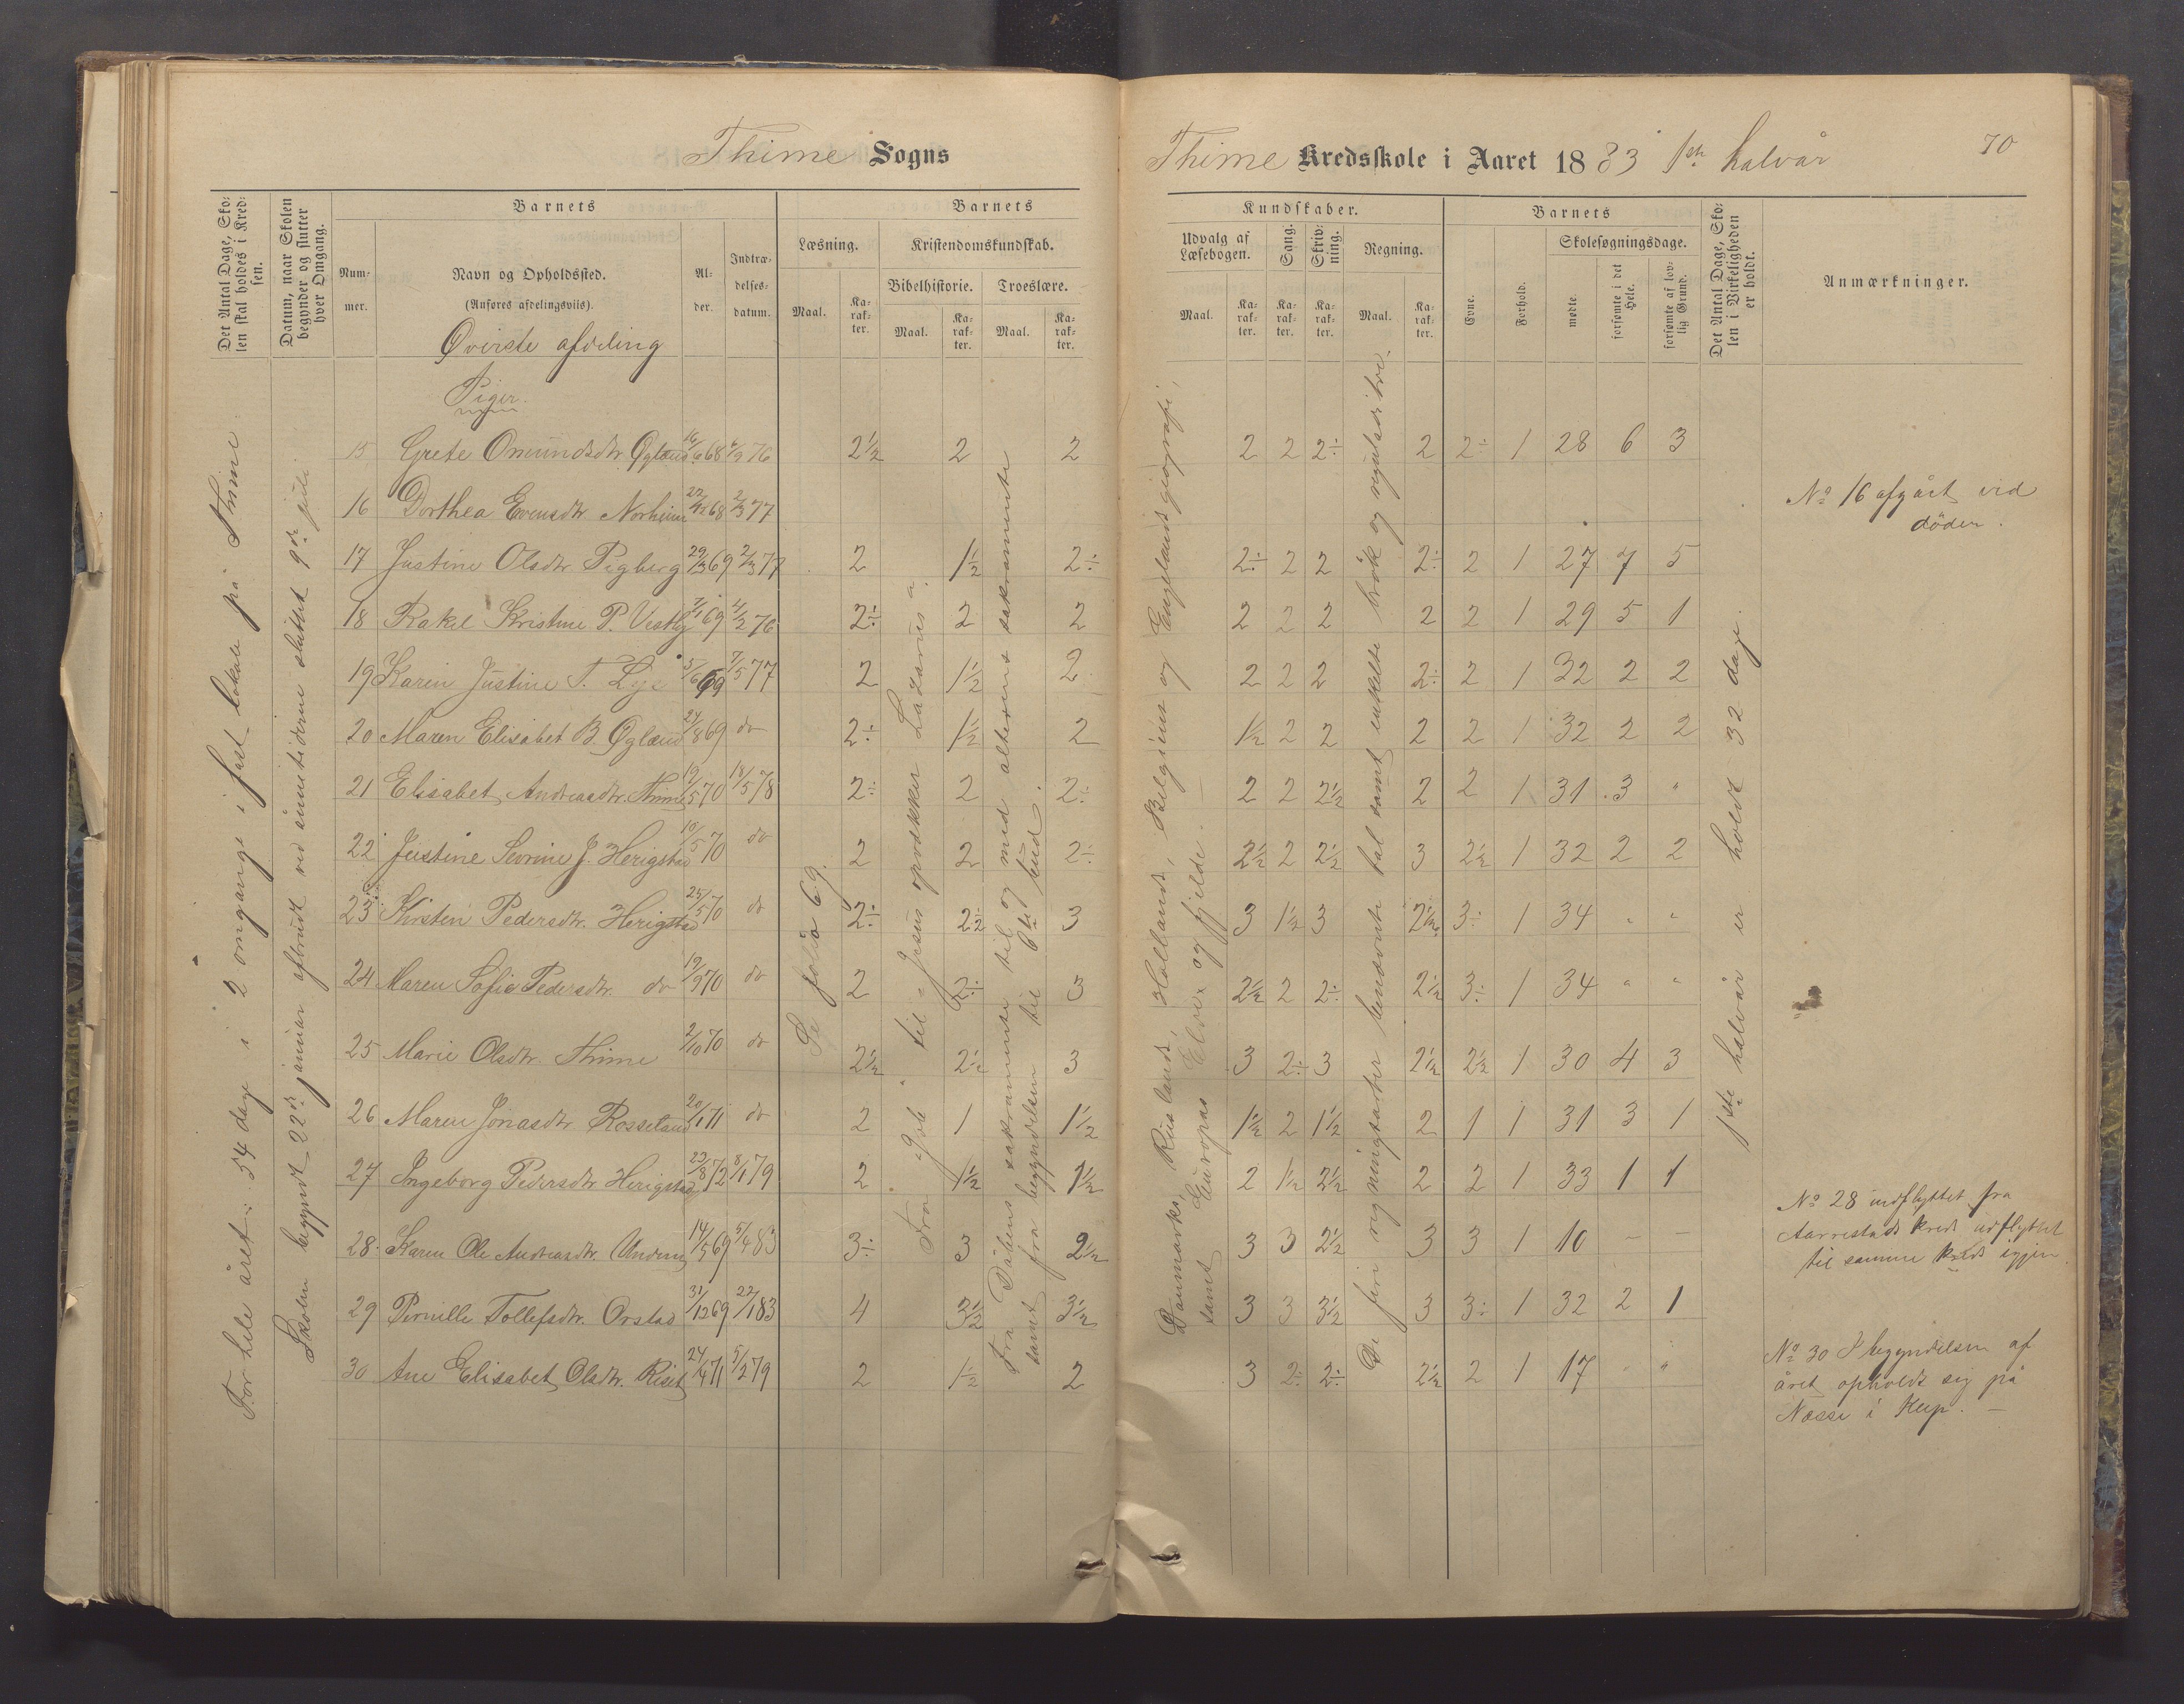 Thime Sogns
Thime Kredsskole i Aaret 1883 1ste halvår
70
Det Antal Dage, Skolen skal holdes i Kredsen.
Datum, naar Skolen begynder og slutter hver Omgang.
Barnets
Nummer.
Navn og Opholdssted.
(Anføres afdelingsviis).
Alder.
Indtrædelsesdatum.
Barnets
Læsning.
Maal.
Karakter.
Kristendomskundskab.
Bibelhistorie.
Maal.
Karakter.
Troeslære.
Maal.
Karakter.
Kundskaber.
Udvalg af Læsebogen.
Maal.
Karakter.
Sang.
Karakter.
Skrivning.
Karakter.
Regning.
Maal.
Karakter.
Barnets
Evne.
Forhold.
Skolesøgningsdage.
mødte.
forsømte i det Hele.
forsømte af lovlig Grund.
Det Antal Dage, Skolen i Virkeligheden er holdt.
Anmærkninger.
Øverste afdeling
Piger.
For hele året: 54 dage i 2 omgange i fast lokale på Thime.
Skolen begyndt 22de januar afbrudt ved sluttet 9de juli
Se folio 69.
Fra "Gob" til "Jesus opvækker Lazarus".
Fra Dåbens sakramente til og med alterens sakramente
samt fra begyndelsen til 6te bud.
Danmarks, Ruslands, Hollands, Belgiens og Englands geografi,
samt Europas Elve og fjelde.
De fire regningsarter benævnte tal samt enkelte brøk og reguladetri.
1ste halvår er holdt 32 dage.
15 Grete Omundsdtr. Øgland 16/6 68 4/9 76 2½ 2 2 2 2 2÷ 2 2÷ 1 28 6 3
16 Dorthea Evensdtr Norheim 27/12 68 2/3 77
No 16 afgået ved
døden.
17 Justine Olsdtr Pigberg 29/3 69 2/3 77 2 1½ 2÷ 2÷ 2 2 2÷ 2 1 27 7 5
18 Rakel Kristine P. Vestly 7/1 69 4/2 76 2÷ 2 2 2 2 2 2 2 1 29 5 1
19 Karen Justine T. Lye 5/6 69 7/5 77 2 1½ 2 2 2 2 2÷ 2 1 32 2 2
20 Maren Elisabet B. Øgland 24/8 69 do 2÷ 1½ 2 1½ 2 2 2 2 1 32 2 2
21 Elisabet Andreasdtr. Thime 12/5 70 18/5 78 2÷ 2 2÷ 2 2 2½ 2 2 1 31 3 "
22 Justine Sevrine J. Herigstad 10/5 70 do 2 2 2÷ 2½ 2 2½ 3 2½ 1 32 2 2
23 Kirsten Pedersdtr. Herigstad 25/5 70 do 2÷ 2½ 3 3 1½ 3 2½ 3÷ 1 34 " "
24 Maren Sofie Pedersdtr. do 12/9 70 do 2 2÷ 3 2½ 2 2÷ 2½ 3÷ 1 34 " "
25 Marie Olsdtr. Thime 2/10 70 do 2½ 2½ 3 3 2÷ 3 2½ 2½ 1 30 4 3
26 Maren Jonasdtr Rosseland 20/1 71 do 2 1 1½ 1½ 2 1½ 2 1 1 31 3 1
27 Ingeborg Pedersdtr Herigstad 23/8 72 8/1 79 2 1½ 1½ 2 1½ 2½ 2 2 1 33 1 1
28 Karen Ole Andreasdtr. Undem 14/5 69 5/4 83 3÷ 3 2½ 3 3 2½ 3 3 1 10 – –
No 28 indflyttet fra
Aarrestads kreds udflyttet
til samme kreds igjen.
29 Pernille Tollefsdtr. Orstad 31/12 69 22/1 83 4 3½ 3½ 3 3 3½ 3 3÷ 1 32 2 1
30 Ane Elisabet Olsdtr. Riset 24/4 71 5/2 79 2 1½ 2 3 2÷ 2÷ 2½ 2 1 17 " "
No 30 I begyndelsen af
året opholdt seg på
Næsse i Klep. –